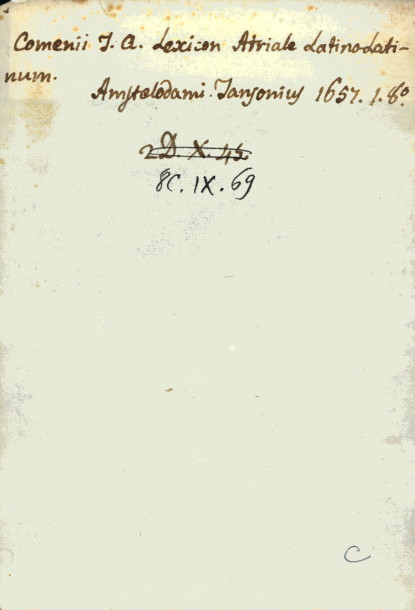 Comenii J. A. Lexicon Atriale Latino-Lati-
num.
Amstelodami. Jansonius 1657. 1. 8º
2D. X. 45
8C. IX. 69
C